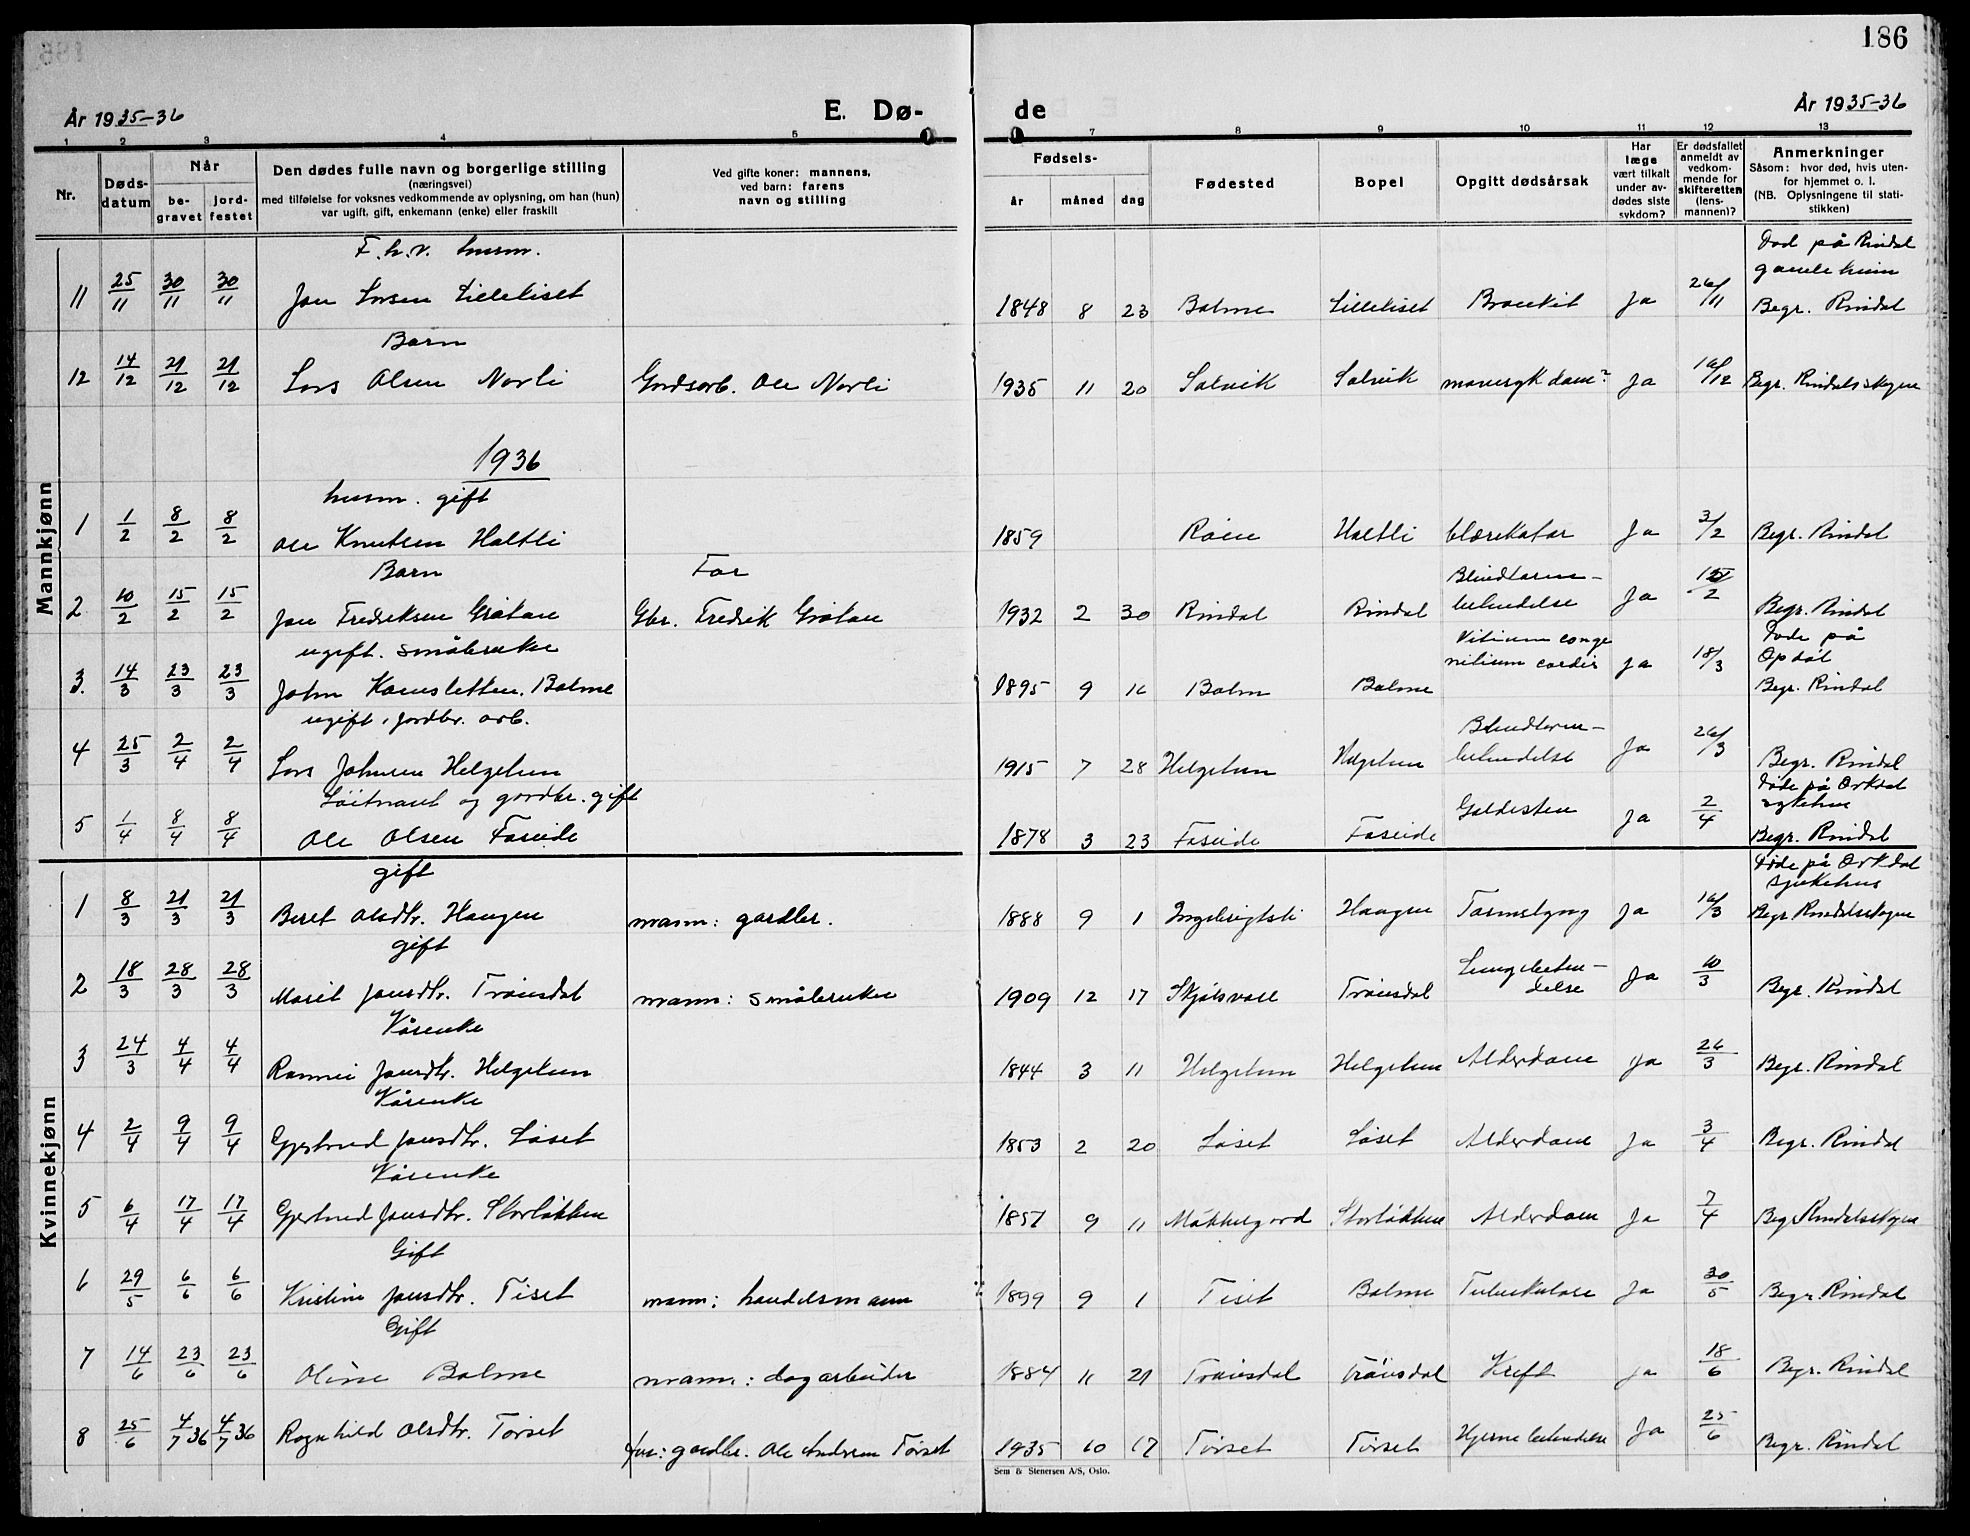 186
År 1935-36
E. Dø-
de
År 1935-36
1 2 3 4 5 7 8 9 10 11 12 13
Nr.
Døds-
datum
Når
be-
gravet
jord-
festet
Den dødes fulle navn og borgerlige stilling
(næringsvei)
med tilføielse for voksnes vedkommende av oplysning, om han (hun)
var ugift, gift, enkemann (enke) eller fraskilt
Ved gifte koner: mannens,
ved barn: farens
navn og stilling
Fødsels-
år
måned
dag
Fødested
Bopel
Opgitt dødsårsak
Har
læge
vært tilkalt
under av-
dødes siste
sykdom?
Er dødsfallet
anmeldt av
vedkom-
mende for
skifteretten
(lens-
mannen)?
Anmerkninger
Såsom: hvor død, hvis uten-
for hjemmet o. l.
(NB. Oplysningene til stati-
stikken)
Mannkjønn
F.h.v. husm.
Død på Rindal
gamleheim
11 25/11 30/11 30/11 Jon Larsen Lilleliset 1848 8 23 Bolme Lilleliset Bronkit Ja 26/11 Begr. Rindal
Barn
12 14/12 21/12 21/12 Lars Olsen Norli Gårdsarb. Ole Norli 1935 11 20 Solvik Solvik Ja 16/12 Begr. Rindalsskogen
1936
husm. gift
1 1/2 8/2 8/2 Ole Knutsen Haltli 1859 Røen Haltli blærekatar Ja 3/2 Begr. Rindal
Barn Far Blindtarm-
2 10/2 15/2 15/2 Jon Fredriksen Grøtan Gbr. Fredrik Grøtan 1932 2 30 Rindal Rindal betendelse Ja Begr. Rindal
ugift. småbruker Vitium conge Døde på
3. 14/3 23/3 23/3 John Bolme 1895 9 16 Bolm Bolme nitium cordis Ja 18/3 Opdal
Begr. Rindal
ugift, jordbr. arb. Blindtarm-
4 25/3 2/4 2/4 Lars Johnsen Helgetun 1915 7 28 Helgetun Helgetun betendelse Ja 26/3 Begr. Rindal
Løitnant og gårdbr. gift Døde på Orkdal
sykehus
5 1/4 8/4 8/4 Ole Olsen Foseide 1878 3 23 Foseide Foseide Galdesten Ja 2/4 Begr. Rindal
Kvinnekjønn
gift Døde på Orkdal
sjukehus
1 8/3 21/3 21/3 Beret Olsdtr. Haugen mann: gårdbr. 1888 9 1 Ingebrigtsli Haugen Tarmslyng Ja 16/3 Begr. Rindalsskogen
gift Lungebeten-
2 18/3 28/3 28/3 Marit Jonsdtr. Trønsdal mann: småbruker 1909 12 17 Trønsdal delse Ja 10/3 Begr. Rindal
Kårenke
3 24/3 4/4 4/4 Jonsdtr. Helgetun 1844 3 11 Helgetun Helgetun Alderdom Ja 26/3 Begr. Rindal
Kårenke
4 2/4 9/4 9/4 Gjertrud Jonsdtr. Løset 1853 2 20 Løset Løset Alderdom Ja 3/4 Begr. Rindal
Kårenke
5 6/4 17/4 17/4 Gjertrud Jonsdtr. Storløkken 1857 9 11 Møkkelgård Storløkken Alderdom Ja 7/4 Begr Rindalsskogen
Gift
6 29/5 6/6 6/6 Kristine Jonsdtr. Tiset mann: handelsmann 1899 9 1 Tiset Bolme Tuberkulose Ja 30/5 Begr. Rindal
Gift
7 14/6 23/6 23/6 Oline Bolme mann: dagarbeider 1884 11 21 Trønsdal Trønsdal Kreft ja 18/6 Begr. Rindal
8 25/6 4/7 36 4/7 36 Ragnhild Olsdtr. Tørset far: gårdbr. Ole Andersen Tørset 1935 10 17 Tørset Tørset Hjernebetendelse Ja 25/6 Begr. Rindal
Sem & Stenersen A/S, Oslo.